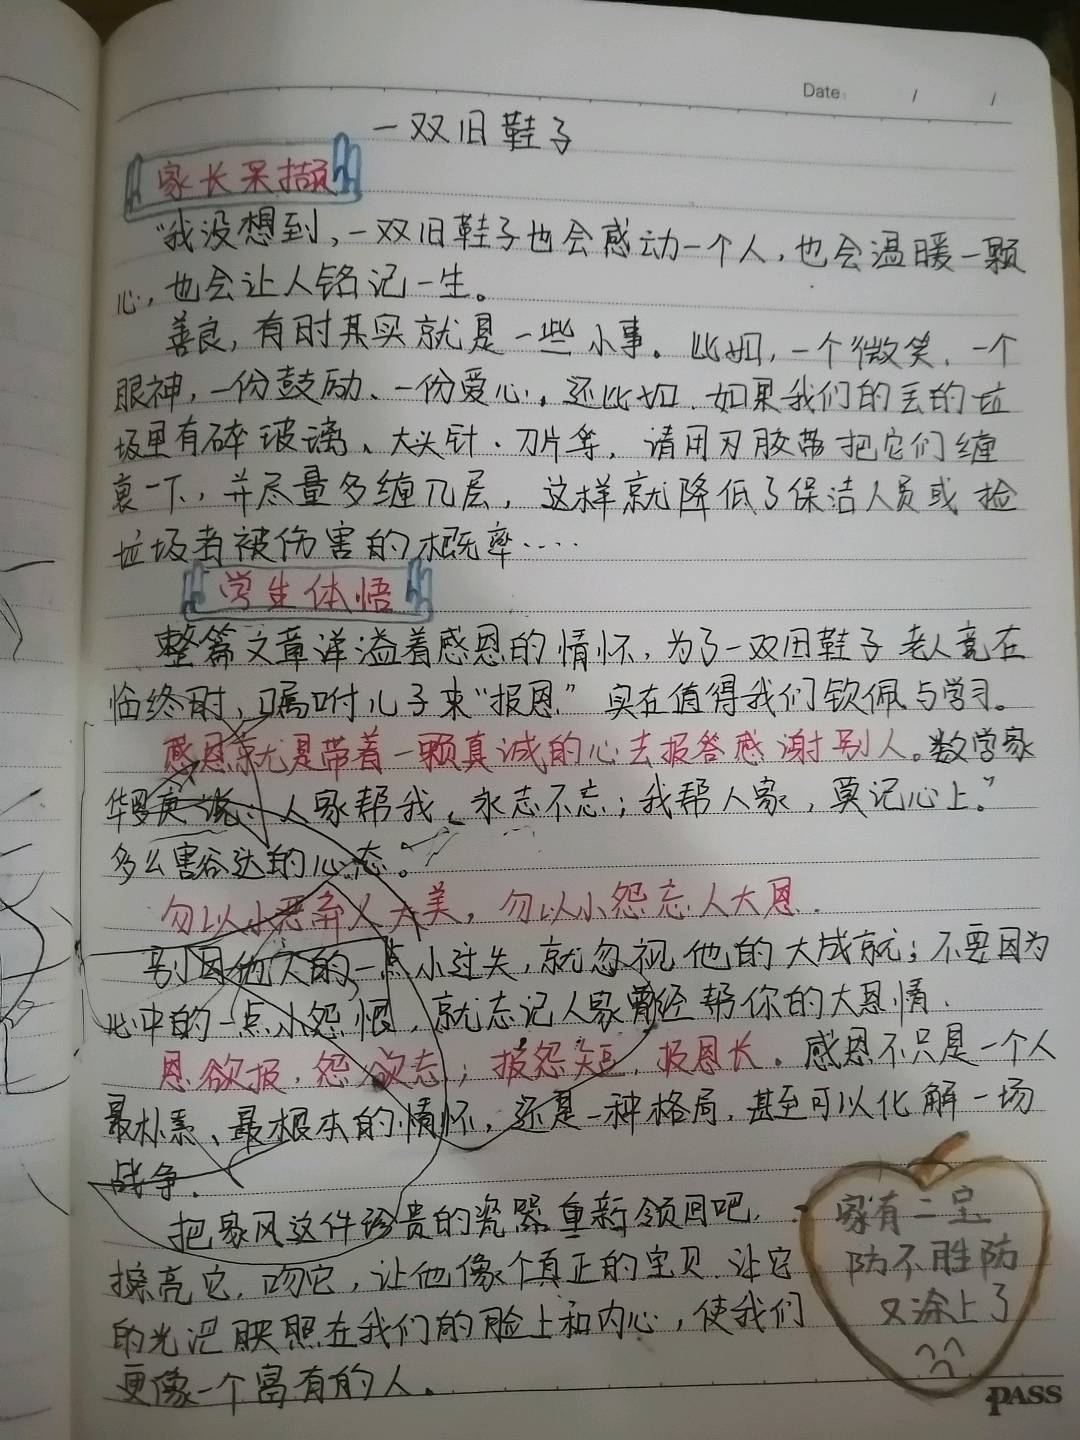 Date: / /
一双旧鞋子
家长采撷
"我没想到,一双旧鞋子也会感动一个人,也会温暖一颗
心,也会让人铭记一生。
善良,有时其实就是一些小事。比如,一个微笑、一个
眼神,一份鼓励、一份爱心。还比如、如果我们的丢的垃
圾里有碎玻璃、大头针、刀片等,请用刃胶带把它们缠
裹一下,并尽量多缠几层,这样就降低了保洁人员或捡
垃圾者被伤害的概率····
学生体悟
整篇文章洋溢着感恩的情怀,为了一双旧鞋子老人竟在
临终时,嘱咐儿子来"报恩"实在值得我们钦佩与学习。
感恩就是带着一颗真诚的心去报答感谢别人。数学家
华罗庚说:人家帮我,永志不忘;我帮人家,莫记心上。"
多么豁达的心态。
勿以小恶弃人大美,勿以小怨忘人大恩.
别因他人的一点小过失,就忽视他的大成就;不要因为
心中的一点小怨恨,就忘记人家曾经帮你的大恩情.
恩欲报,怨欲忘;报怨短,报恩长。感恩不只是一个人
最朴素、最根本的情怀,还是一种格局,甚至可以化解一场
战争.
把家风这件珍贵的瓷器重新领回吧,
擦亮它,吻它,让他像个真正的宝贝,让它
的光泽映照在我们的脸上和内心,使我们
更像一个富有的人。
家有二宝
防不胜防
又涂上了
PASS